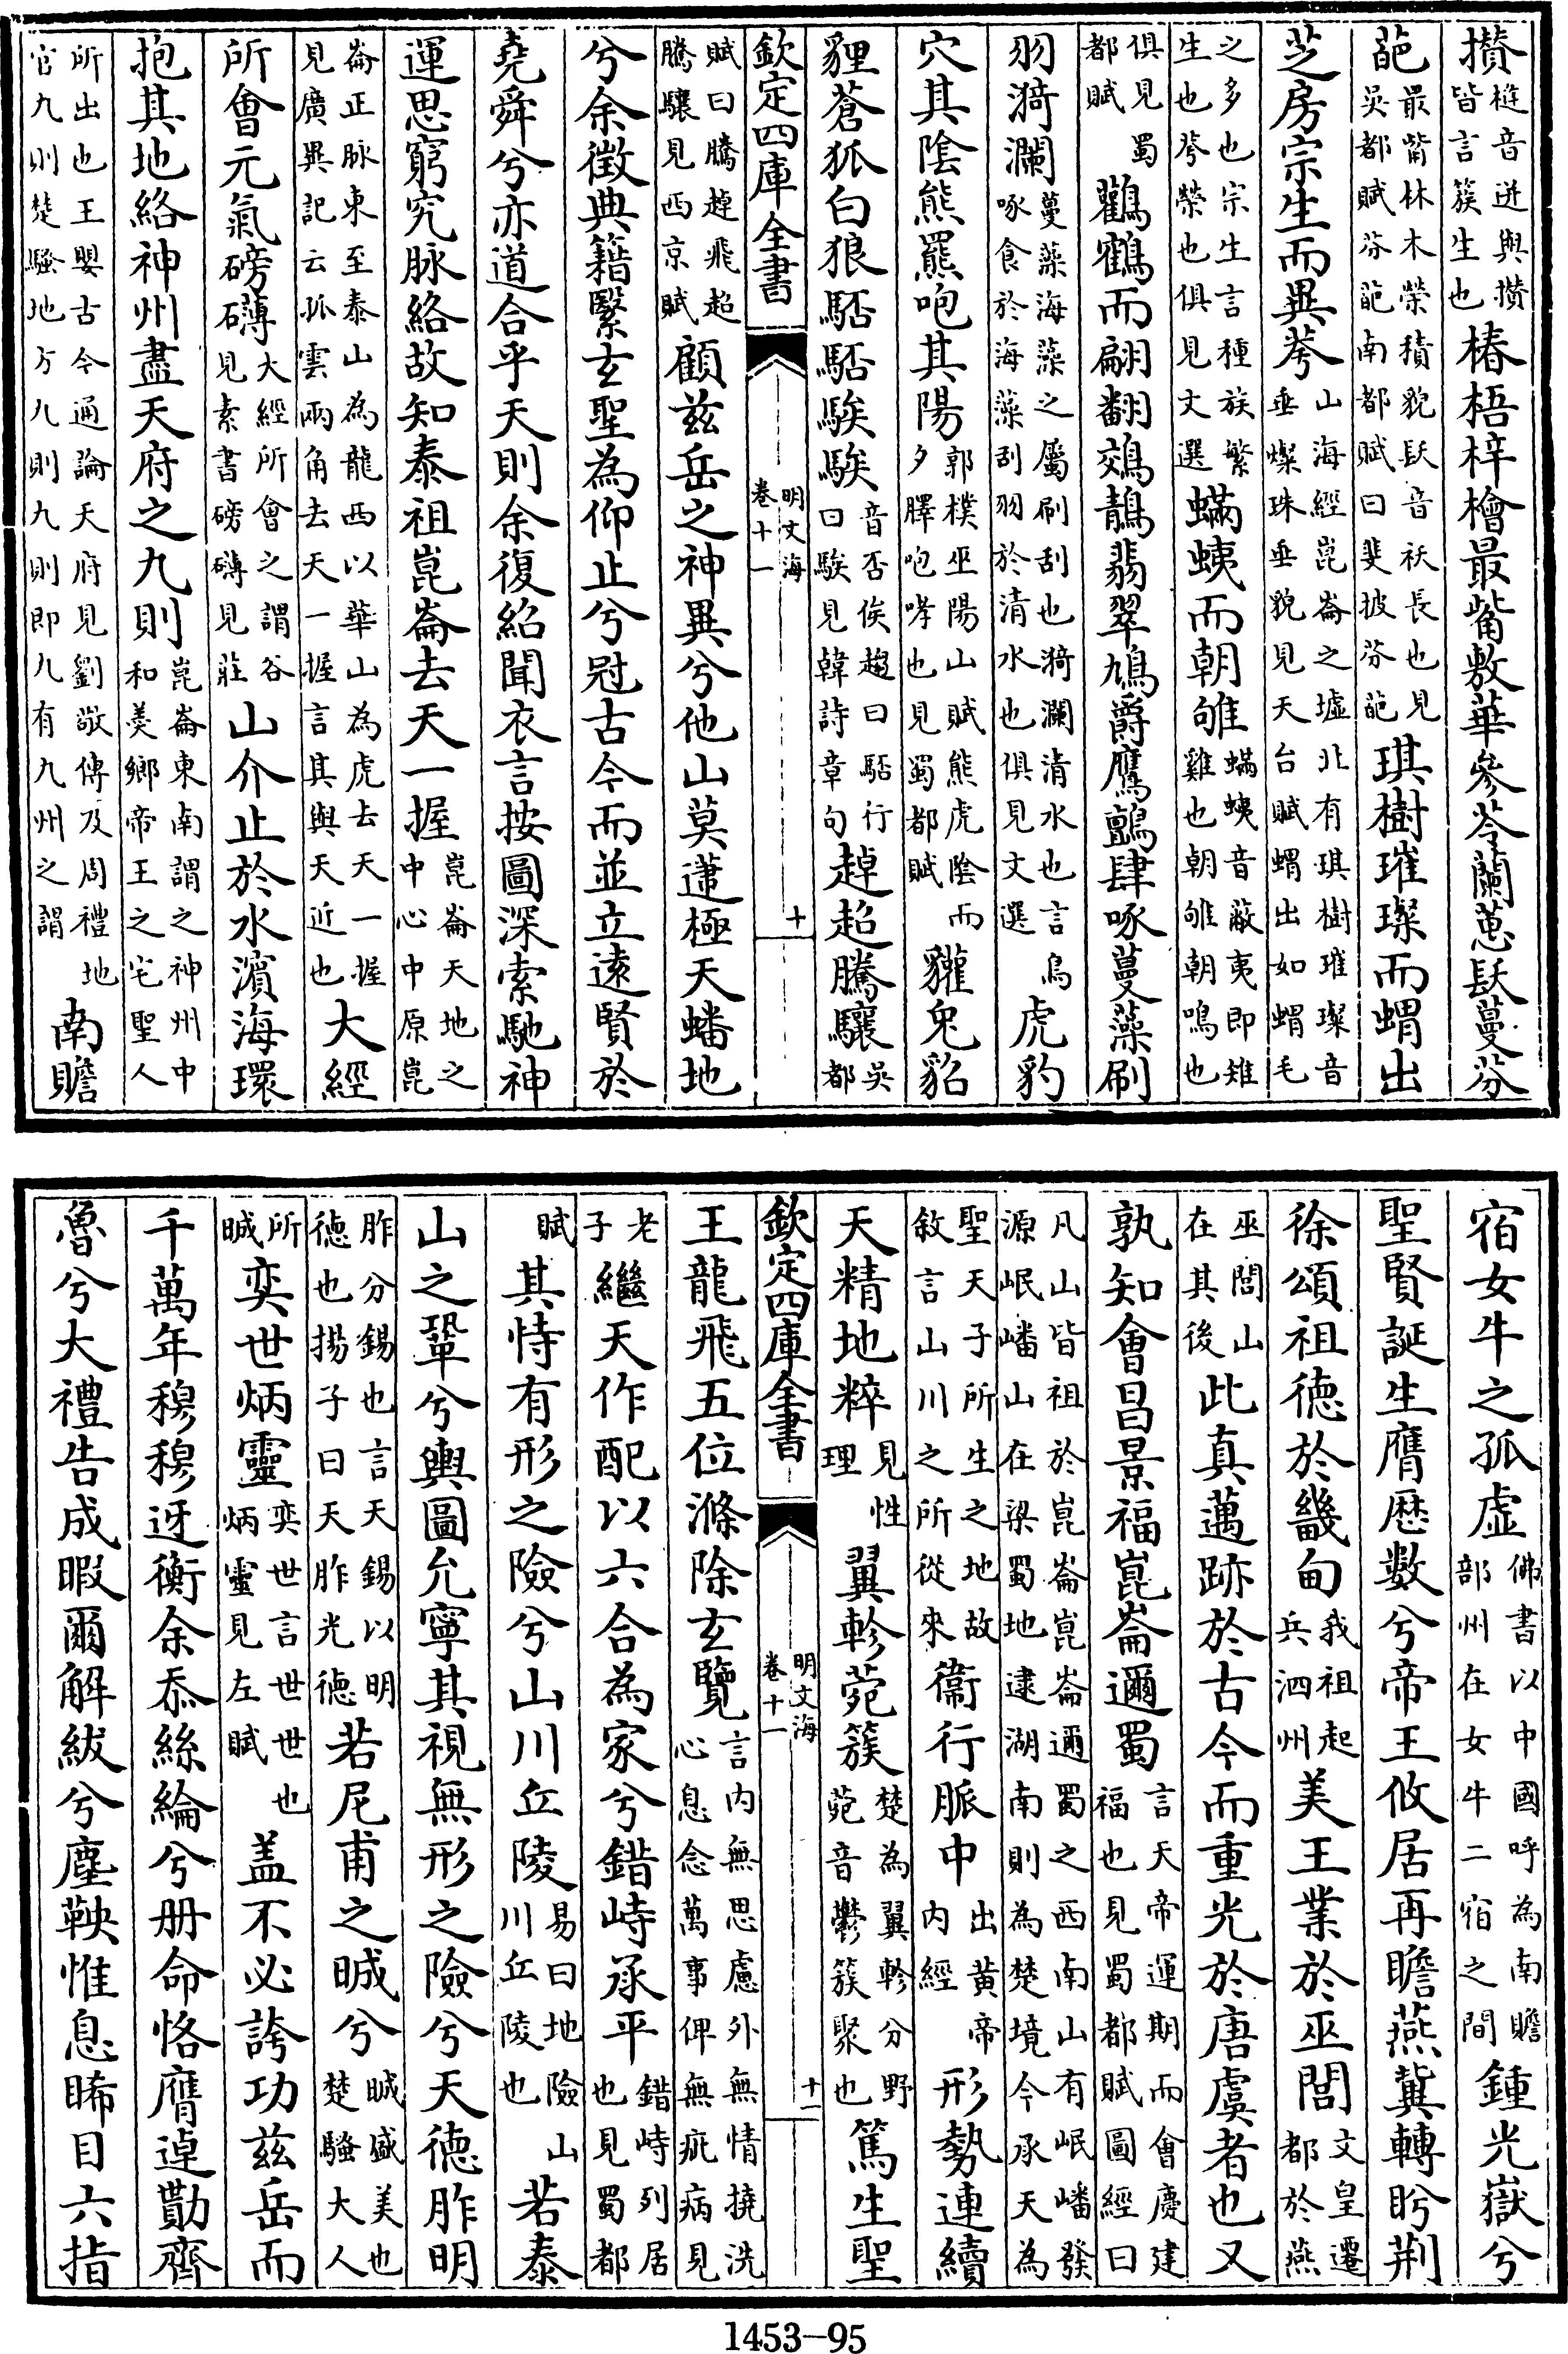 攅音迸與攅皆言簇生也椿梧梓檜最觜敷華參苓蘭蕙镺蔓芬
葩最觜林木榮積貌镺音袄長也見吳都賦芬葩南都賦曰斐披芬葩琪樹璀璨而蝟出
芝房宗生而異荂山海經崑崙之墟北有琪樹璀璨音垂燦珠垂貌見天台賦蝟出如蝟毛
之多也宗生言種族繁生也荂榮也俱見文選蟎蛦而朝雊蟎蛦音蔽夷即雉雞也朝雊朝鳴也
俱見蜀都賦鸛鶴而翩翻鵁鶄翡翠鳩爵鷹鸇肆啄蔓藻刷
羽漪瀾蔓藻海藻之屬刷刮也漪瀾清水也言鳥啄食於海藻刮羽於清水也俱見文選虎豹
穴其陰熊羆咆其陽郭樸巫陽山賦熊虎陰而夕臎咆哮也見蜀都賦貛兔貂
貍蒼狐白狼駓駓騃騃音否俟趨曰駓行曰騃見韓詩章句趠超騰驤吳都
欽定四庫全書 明文海 卷十一 十
賦曰騰趠飛超騰驤見西京賦顧茲岳之神異兮他山莫逮極天蟠地
兮余徴典籍繄玄聖為仰止兮冠古今而並立逺賢於
堯舜兮亦道合乎天則余復紹聞衣言按圖深索馳神
運思窮究脉絡故知泰祖崑崙去天一握崑崙天地之中心中原崑
崙正脉東至泰山為龍西以華山為虎去天一握見廣異記云孤雲兩角去天一握言其與天近也大經
所會元氣磅礴大經所會之謂谷見素書磅礴見莊山介止於水濵海環
抱其地絡神州盡天府之九則崑崙東南謂之神州中和羙鄉帝王之宅聖人
所出也王嬰古今通論天府見劉敬傳及周禮地官九則楚騷地方九則九則即九有九州之謂南贍
宿女牛之孤虚佛書以中國呼為南贍部州在女牛二宿之間鍾光嶽兮
聖賢誕生膺厯数兮帝王攸居再瞻燕冀轉盻荆
徐頌祖德於畿甸我祖起兵泗州美王業於巫閭文皇遷都於燕
巫閭山在其後此真邁跡於古今而重光於唐虞者也又
孰知㑹昌景福崑崙邇蜀言天帝運期而㑹慶建福也見蜀都賦圖經曰
凡山皆祖於崑崙崑崙邇蜀之西南山有岷嶓發源岷嶓山在梁蜀地逮湖南則為楚境今承天為
聖天子所生之地故敘言山川之所從來衞行脈中出黄帝内經形勢連續
天精地粹見性理翼軫菀簇楚為翼軫分野菀音鬱簇聚也篤生聖
欽定四庫全書 明文海 卷十一 十一
王龍飛五位滌除玄覽言内無思慮外無情撓洗心息念萬事俾無疵病見
老子繼天作配以六合為家兮錯峙承平錯峙列居也見蜀都
賦其恃有形之險兮山川丘陵易曰地險山川丘陵也若泰
山之鞏兮輿圖允寧其視無形之險兮天德胙明
胙分錫也言天錫以明德也揚子曰天胙光德若尼甫之晠兮晠盛美也楚騷大人
所晠奕世炳靈奕世言世世也炳靈見左賦葢不必誇功茲岳而
千萬年穆穆迓衡余忝絲綸兮册命恪膺逴勩齊
魯兮大禮告成暇爾解紱兮塵鞅惟息睎目六指
1453—95